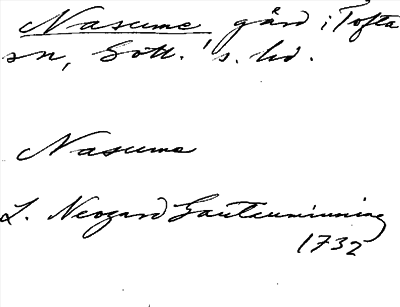 Nasume, gård i Tofta
sn, Gotl. s. hd.
Nasume
L. Neogard Gautauminning
1732